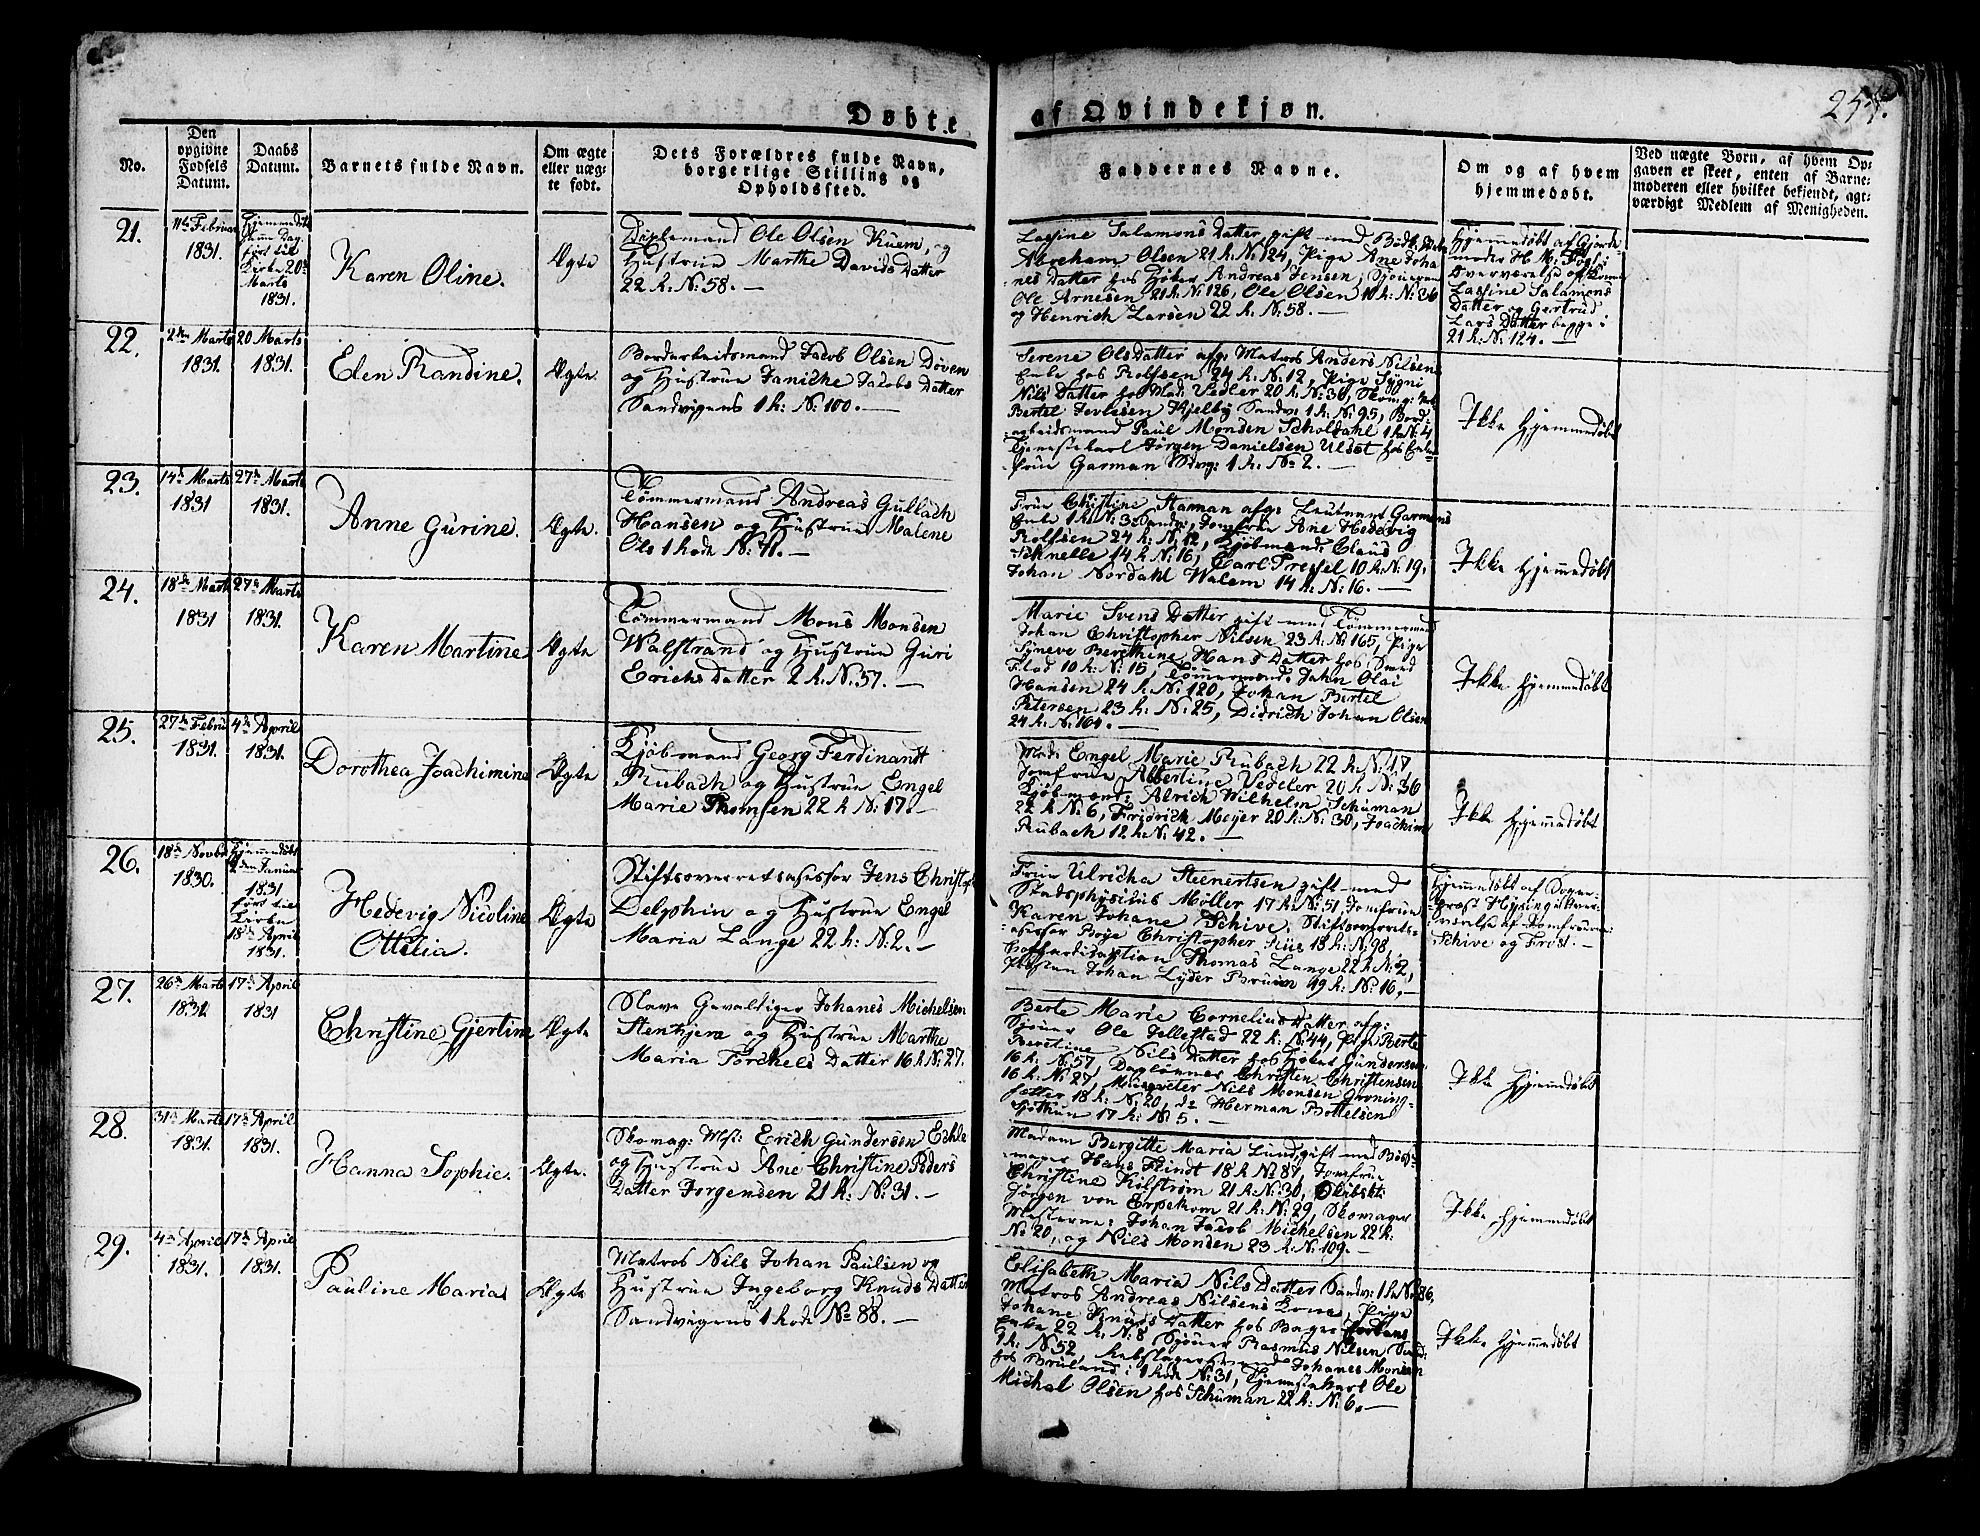 Døbte af Qvindekjøn.
254.
No.
Den opgivne Fødsels Datum.
Daabs Datum.
Barnets fulde Navn.
Om ægte eller uægte født.
Dets Forældres fulde Navn, borgerlige Stilling og Opholdssted.
Faddernes Navne.
Om og af hvem hjemmedøbt.
Ved uægte Børn, af hvem Opgaven er skeet, enten af Barnemoderen eller hvilket bekjendt, agtværdigt Medlem af Menigheden.
21.
1831.
Kirke 20de
Marts
1831.
Karen Oline.
Ægte
Ole Olsen Kuem, og
Hustrue Marthe Davids Datter
22 R: No: 58. —
Lassine Salamons Datter gift med
Abraham Olsen 21 R: No 124, Pige Ane Joha-
nes Datter hos Andreas Jensen,
Ole Arnesen 21 R: No 126, Ole Olsen 10 R: No: 36
og Henrich Larsen 22 R: No: 58. —
Hjemmedøbt af Gjorde-
moder H. M. Fogl i
Overværelse
Lassine Salamons
Datter og Gertrud
Lars Datter begge i
21 R: No: 124.
22.
2den Marts
1831.
20 Marts
1831.
Elen Randine.
Ægte.
Bordarbeidsmand Jacob Olsen Døven
og Hustrue Janiche Jacobs Datter
Sandvigens 1 R: No: 100. —
Serene Ols Datter afg: Matros Anders Nilsens
Enke hos Rolfsen 24 R: No: 12, Pige Sygni
Nils Datter hos Mad: Vedler 20 R: No: 36,
Bertel Kjelby Sandv: 1 R: No 95, Bord-
arbeidsmand Paul Monsen Scholdahl 1 R: No: 4
Tjenestekarl Jørgen Danielsen Ulset hos
frue Garman Sdvg: 1 R: No 2. —
Ikke Hjemmedøbt
23.
14de Marts
1831
27de Marts
1831.
Anne Gurine.
Ægte.
Tømmermand Andreas Gullach
Hansen og Hustrue Malene
Ols 1 Rode No: 71. —
Frue Christine Staman afg: Leutenant Garmans
Enke 1 R: No: 3 Sandv:, Jomfrue Ane Hedevig
Rolfsen 24 R: No 12, Kjøbmand: Claus
Schnelle 14 R: No 16, Carl Tressel 10 R: No 19,
Johan Nordahl Walem 14 R: No: 16. —
Ikke Hjemmedøbt
24.
18de Marts
1831
27de Marts
1831.
Karen Martine
Ægte
Tømmermand Mons Monsen
Walstrand og Hustrue Guri
Erichs Datter 2 R: No: 57. —
Marie Svens Datter gift med Tømmermand
Johan Christopher Nilsen 23 R: No 165, Pige
Syneve Berethine Hans Datter hos Smed
Flod 10 R: No: 15, Tømmermænd: John Olai
Hansen 24 R: No 120, Johan Bertel
Petersen 23 R: No: 25, Didrich Johan Olsen
24 R: No: 104. —
Ikke Hjemmedøbt
25.
1831.
4de April
1831.
Dorothea Joachimine
Ægte
Kjøbmand Georg Ferdinandt
Rubach og Hustrue Engel
Marie Thomsen 22 R No: 17. —
Mad: Engel Marie Rubach 22 R: No: 17
Jomfrue Albertine Vedeler 20 R: No: 36
Kjøbmænd: Alrich Wilhelm Schuman
22 R No 6, Fridrich Meyer 20 R: No: 30, Joachim
Rubach 12 R: No: 42. —
Ikke Hjemmedøbt
26.
1830.
Hjemmedøbt
1831
ført til
Kirke
18de April
1831.
Hedevig Nicoline
Ottelia.
Ægte
Stiftsoverretsassessor Jens Christoph
Delphin og Hustrue Engel
Maria Lange 22 R: No: 2. —
Frue Ulricha Steenertsen gift med
Stadsphysicus Møller 17 R: No: 51 Jomfrue
Karen Johane Schive, Stiftsoverrets-
assessor Boye Christopher 18 R: No: 98,
Thomas Lange 22 R: No: 2,
Johan Lyder Bruun 19 R: No: 16. —
Hjemmedøbt af Sogne-
præst
Jomfruerne
Schive og Frost. —
27.
26de Marts
1831.
17de April
1831
Christine Gjertine
Ægte
Slave Gevaldiger Johanes Michelsen
Stenkjere og Hustrue Marthe
Maria Torckels Datter 16 R No: 27.
Berte Marie Cornelius Datter afg:
Ole Jellestad 22 R: No: 44, Pige Berte
Beretine Nils Datter hos Gundersen
16 R: No: 57, Christen Christensen
16 R: No: 27, Nils Monsen Groning-
sæter 18 R: No: 20, do Herman Bottelsen
17 R: No 5. —
Ikke Hjemmedøbt
28.
31de Marts
1831.
17de April
1831.
Hanna Sophie.
Ægte.
Skomag: Mst: Erich Gundersen
og Hustrue Ane Christine Peders
Datter Jorgensen 21 R: No: 31. —
Madam Bergitte Maria Lund, gift med
Hans Flindt 18 R No 87, Jomfrue
Christine Kilstrøm 21 R: No: 30,
Jørgen von Erpekom 21 R: No: 29, Skomager
Mesterne: Johan Jacob Michelsen 22 R:
No 20, og Nils Monsen 23 R: No 109. —
Ikke Hjemmedøbt
29.
4de April
1831.
17de April
1831.
Pauline Maria
Ægte
Matros Nils Johan Paulsen og
Hustrue Ingeborg Knuds Datter
Sandvigens 1 Rode No 88. —
Elisabeth Maria Nils Datter Sandv: 1 R No 86,
Matros Andreas Nilsens Kone, Pige
Johane Knuds Datter hos Bager
Enke 22 R: No: 8, Rasmus Nilsen
1 R: No 52, Johanes Monsen
hos Bruland i 1 Rode No: 31, Tjenestekarl Ole
Michel Olsen hos Schuman 22 R: No: 6. —
Ikke Hjemmedøbt